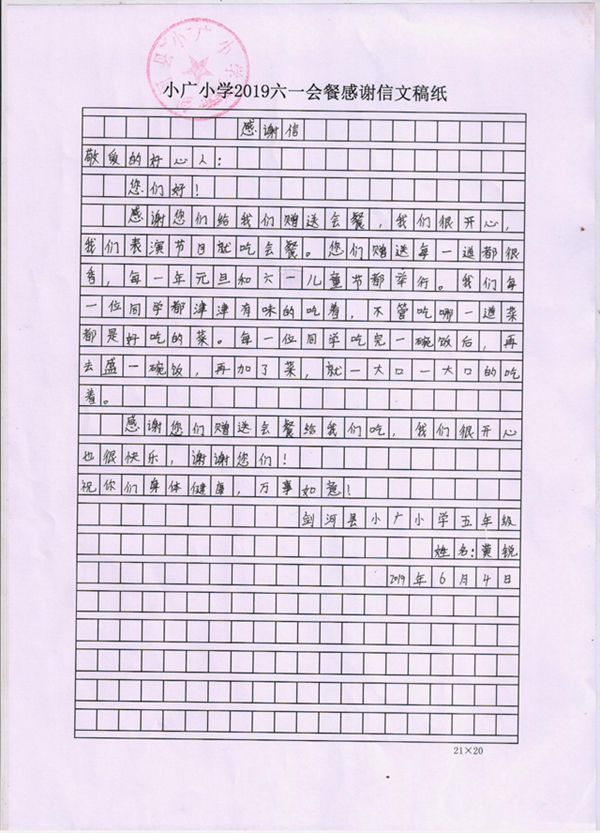 小广小学
小广小学2019六一会餐感谢信文稿纸
感谢信
敬爱的好心人：
您们好！
感谢您们给我们赠送会餐，我们很开心，
我们表演节目就吃会餐。您们赠送每一道都很
香，每一年元旦和六一儿童节都举行。我们每
一位同学都津津有味的吃着，不管吃哪一道菜
都是好吃的菜。每一位同学吃完一碗饭后，再
去盛一碗饭，再加了菜，就一大口一大口的吃
着。
感谢您们赠送会餐给我们吃，我们很开心
也很快乐，谢谢您们！
祝你们身体健康，万事如意！
剑河县小广小学五年级
姓名：黄锐
2019年6月4日
21×20